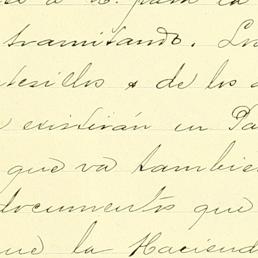 para la
tramitando. Los
tesillos & de los
existirán en Pa
que va tambié
documentos que
que la Haciend